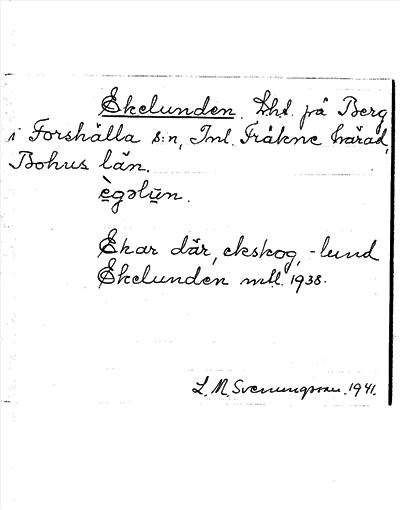 Ekelunden. Lht. på Berg
i Forshälla s:n, Inl. Fräkne härad,
Bohus län.
ègəlūn.
Ekar där, ekskog, -lund
Ekelunden mtl. 1938.
L. M. Svenungsson. 1941.